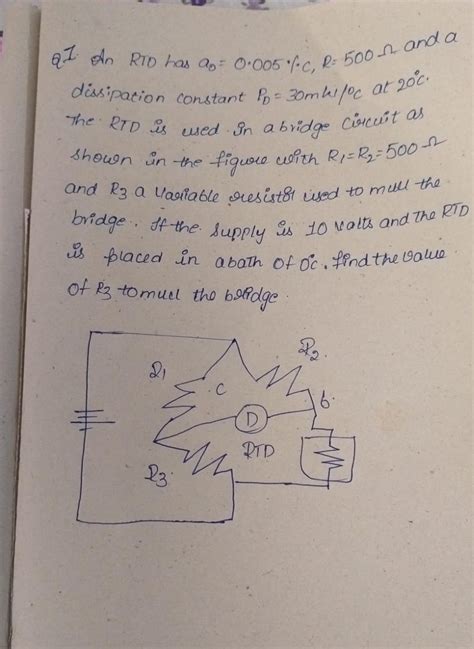 Q1 An RTD has α0 = 0.005/°C, R = 500 Ω and a
dissipation constant PD = 30mW/°C at 20°C.
The RTD is used in a bridge circuit as
shown in the figure with R1 = R2 = 500 Ω
and R3 a variable resistor used to null the
bridge. If the supply is 10 volts and the RTD
is placed in a bath of 0°C. find the value
of R3 to null the bridge.
R1
R2
C
b
D
RTD
R3